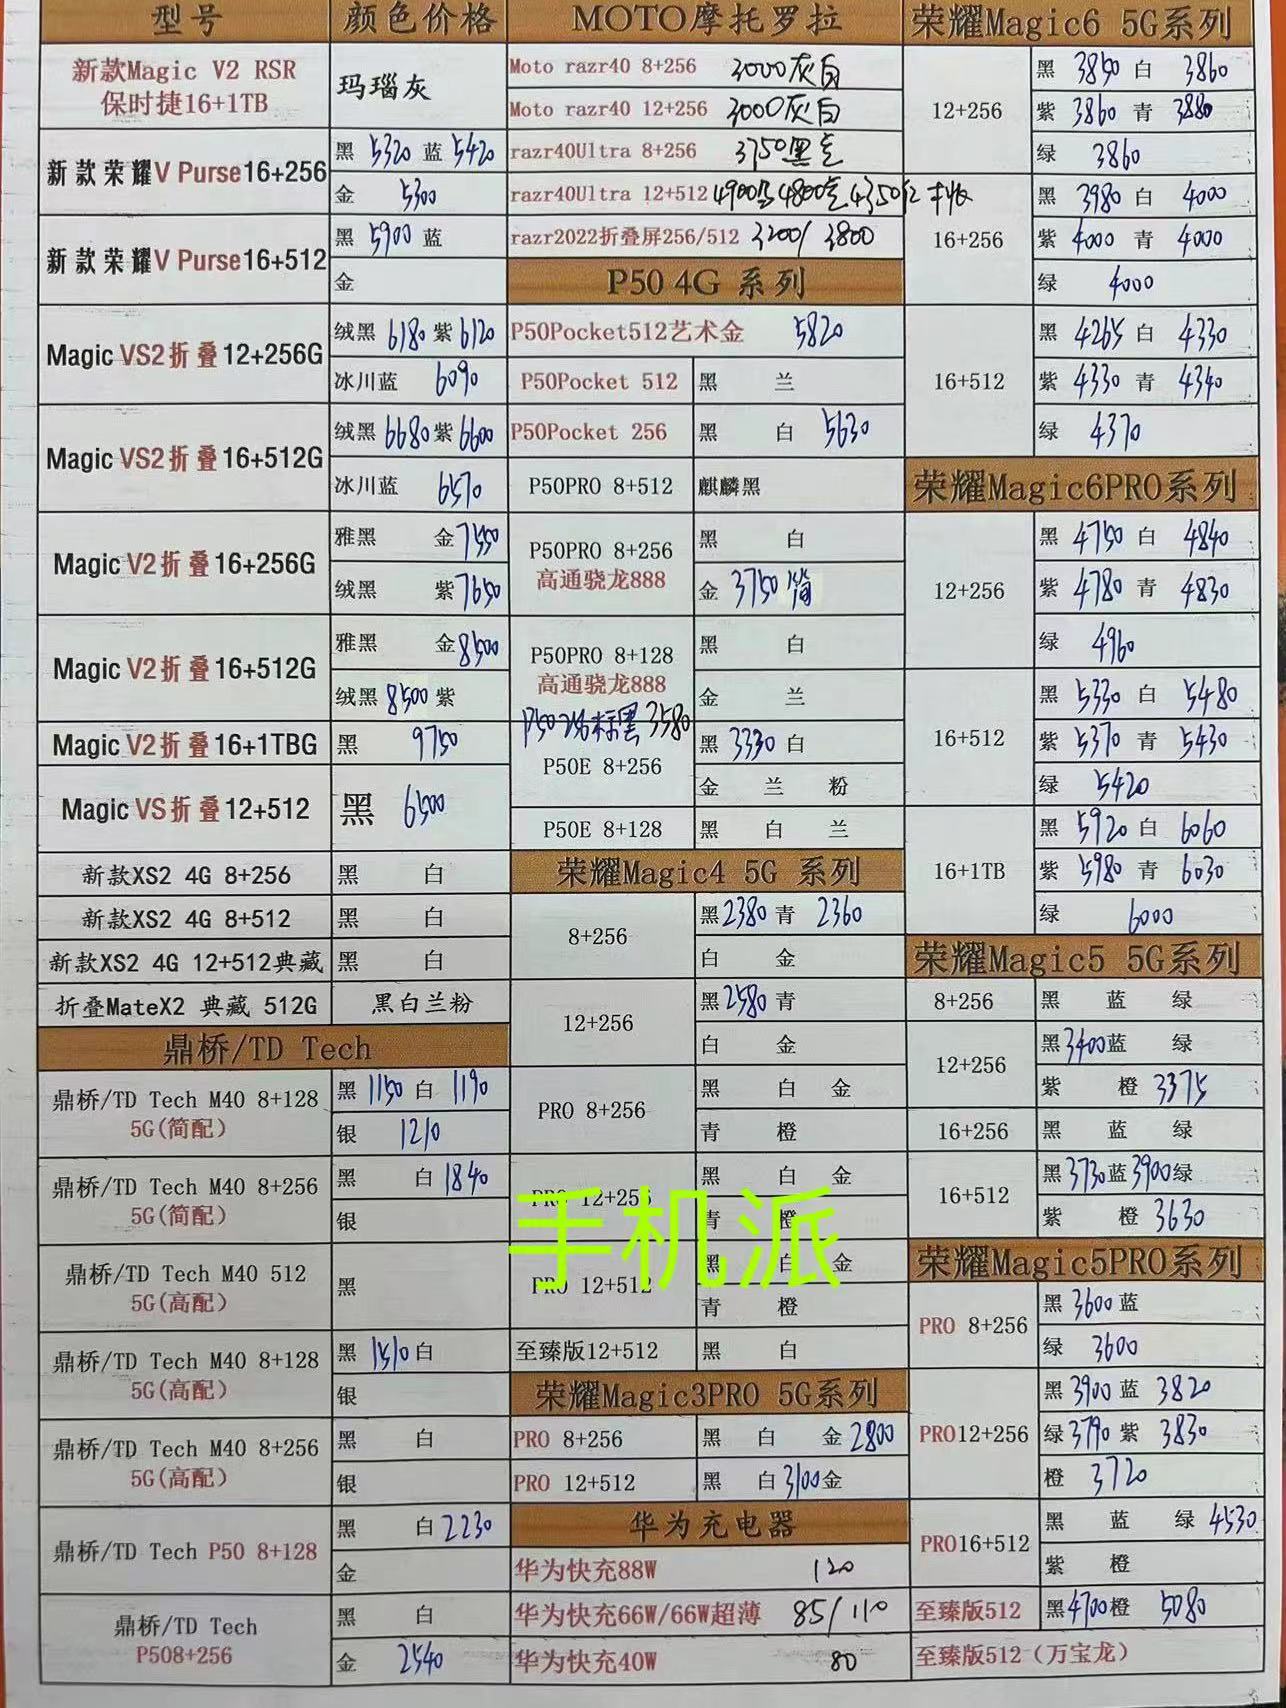 型号 颜色价格
新款Magic V2 RSR
保时捷16+1TB
玛瑙灰
新款荣耀V Purse16+256
黑 5320 蓝 5420
金 5300
新款荣耀V Purse16+512
黑 5900 蓝
金
Magic VS2折叠12+256G
绒黑 6180 紫 6120
冰川蓝 6090
Magic VS2折叠16+512G
绒黑 6680 紫 6600
冰川蓝 6570
Magic V2折叠16+256G
雅黑 金 7550
绒黑 紫 7650
Magic V2折叠16+512G
雅黑 金 8500
绒黑 8500 紫
Magic V2折叠16+1TBG
黑 9750
Magic VS折叠12+512
黑 6500
新款XS2 4G 8+256 黑 白
新款XS2 4G 8+512 黑 白
新款XS2 4G 12+512典藏 黑 白
折叠MateX2 典藏 512G 黑白兰粉
鼎桥/TD Tech
鼎桥/TD Tech M40 8+128
5G(简配)
黑 1150 白 1190
银 1210
鼎桥/TD Tech M40 8+256
5G(简配)
黑 白 1840
银
鼎桥/TD Tech M40 512
5G(高配)
黑
鼎桥/TD Tech M40 8+128
5G(高配)
黑 1510 白
银
鼎桥/TD Tech M40 8+256
5G(高配)
黑 白
银
鼎桥/TD Tech P50 8+128
黑 白 2230
金
鼎桥/TD Tech
P508+256
黑 白
金 2540
MOTO摩托罗拉
Moto razr40 8+256 3000灰白
Moto razr40 12+256 3000灰白
razr40Ultra 8+256 3750黑
razr40Ultra 12+512 4900 4800 4350红
razr2022折叠屏256/512 3200/3800
P50 4G 系列
P50Pocket512艺术金 5820
P50Pocket 512 黑 兰
P50Pocket 256 黑 白 5630
P50PRO 8+512 麒麟黑
P50PRO 8+256
高通骁龙888
黑 白
金 3750 简
P50PRO 8+128
高通骁龙888
黑 白
金 兰
P50 256标黑 3580
P50E 8+256
黑 3330 白
金 兰 粉
P50E 8+128 黑 白 兰
荣耀Magic4 5G 系列
8+256
黑 2380 青 2360
白 金
12+256
黑 2580 青
白 金
PRO 8+256
黑 白 金
青 橙
PRO 12+256
黑 白 金
青 橙
手机派
PRO 12+512
黑 白 金
青 橙
至臻版12+512 黑 白
荣耀Magic3PRO 5G系列
PRO 8+256 黑 白 金 2800
PRO 12+512 黑 白 3100 金
华为充电器
华为快充88W 120
华为快充66W/66W超薄 85/110
华为快充40W 80
荣耀Magic6 5G系列
12+256
黑 3850 白 3860
紫 3860 青 3880
绿 3860
16+256
黑 3980 白 4000
紫 4000 青 4000
绿 4000
16+512
黑 4265 白 4330
紫 4330 青 4340
绿 4370
荣耀Magic6PRO系列
12+256
黑 4750 白 4840
紫 4780 青 4830
绿 4960
16+512
黑 5330 白 5480
紫 5370 青 5430
绿 5420
16+1TB
黑 5920 白 6060
紫 5980 青 6030
绿 6000
荣耀Magic5 5G系列
8+256 黑 蓝 绿
12+256
黑 3400 蓝 绿
紫 橙 3375
16+256 黑 蓝 绿
16+512
黑 3730 蓝 3900 绿
紫 橙 3630
荣耀Magic5PRO系列
PRO 8+256
黑 3600 蓝
绿 3600
PRO12+256
黑 3900 蓝 3820
绿 3790 紫 3830
橙 3720
PRO16+512
黑 蓝 绿 4530
紫 橙
至臻版512 黑 4700 橙 5080
至臻版512（万宝龙）